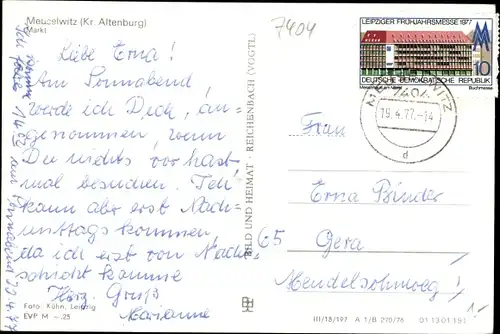 Meuselwitz (Kr. Altenburg)
(Markt)
7404
Liebe Erna!
Am Sonnabend
werde ich Dich, an-
genommen, wenn
Du nichts vor hast
mal besuchen. Ich
kann aber erst Nach-
mittags kommen,
da ich erst von Nacht-
schicht komme
Herz. Gruß
Marianne
Foto: Kühn, Leipzig
EVP M –.25
BILD UND HEIMAT · REICHENBACH (VOGTL)
LEIPZIGER FRÜHJAHRSMESSE 1977
10
DEUTSCHE DEMOKRATISCHE REPUBLIK
Buchmesse
7404
19.4.77.-14
d
Frau
Erna Binder
65 Gera
Mendelsohnweg 1
III/18/197 A 1/B 270/76 01 13 01 191